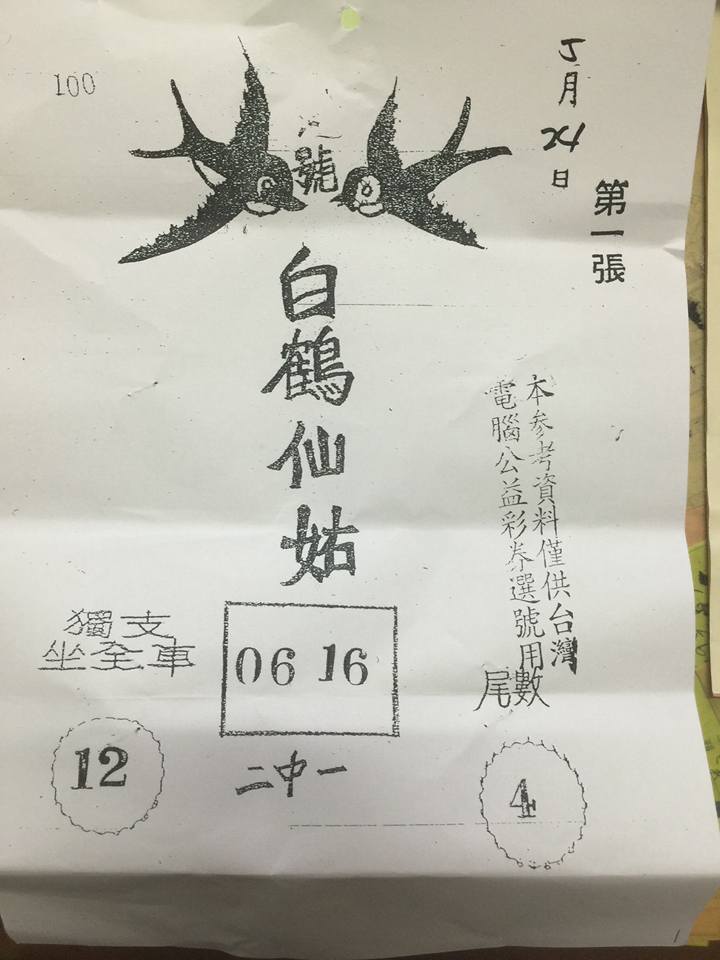 100
號
月
日
第一張
白鶴仙姑
本參考資料僅供台灣
電腦公益彩券選號用
獨支
坐全車
12
06 16
二中一
尾數
4